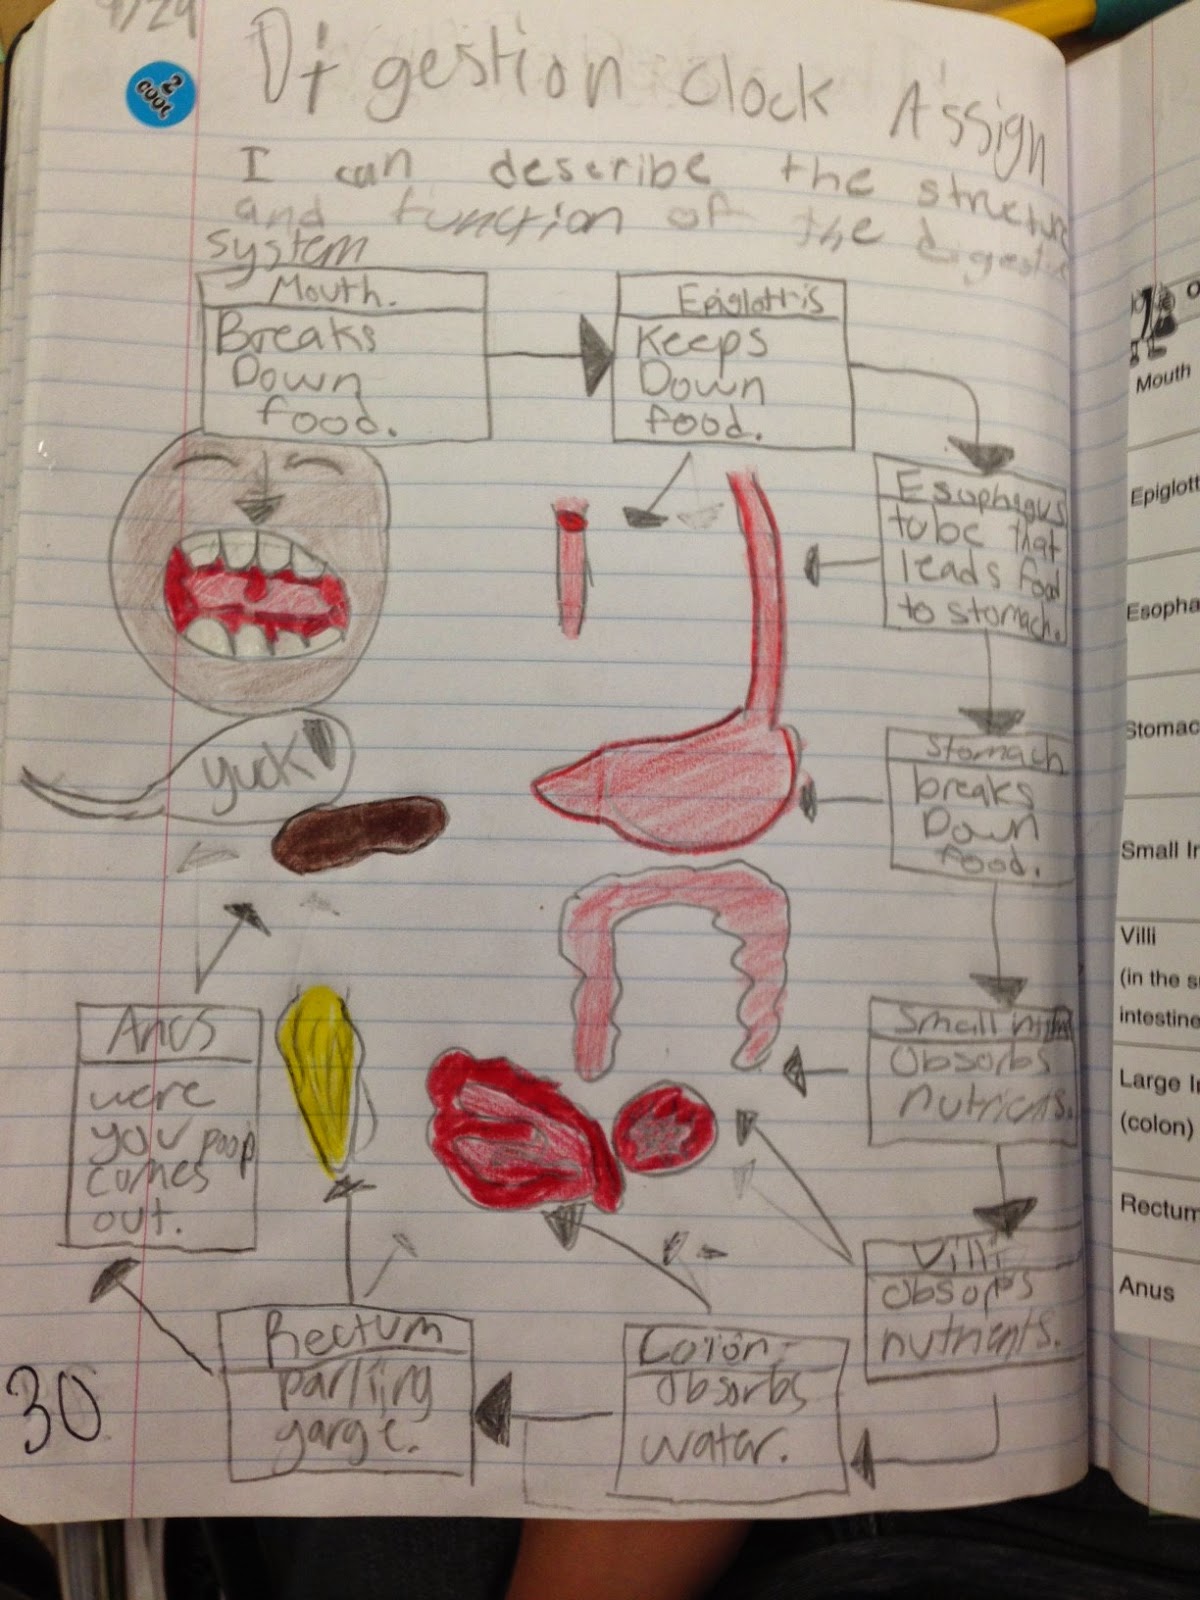 9/29
2 COOL
Digestion clock Assign
I can describe the structure
and function of the digestiv
system
Mouth.
Breaks
Down
food.
Epiglottis
Keeps
Down
food.
Esophagus
tube that
leads food
to stomach.
yuck!
Stomach
breaks
Down
food.
Small
absorbs
nutrients.
Villi
absorbs
nutrients.
Colon
absorbs
water.
Rectum
parking
garge.
Anus
were
you poop
comes
out.
30
Mouth
Epiglott
Esopha
Stomac
Small In
Villi
(in the s
intestine
Large I
(colon)
Rectum
Anus